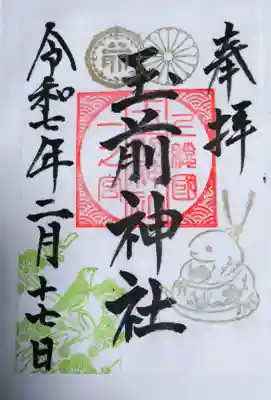 奉拝
上総国一之宮
玉前神社
令和七年二月十七日
前